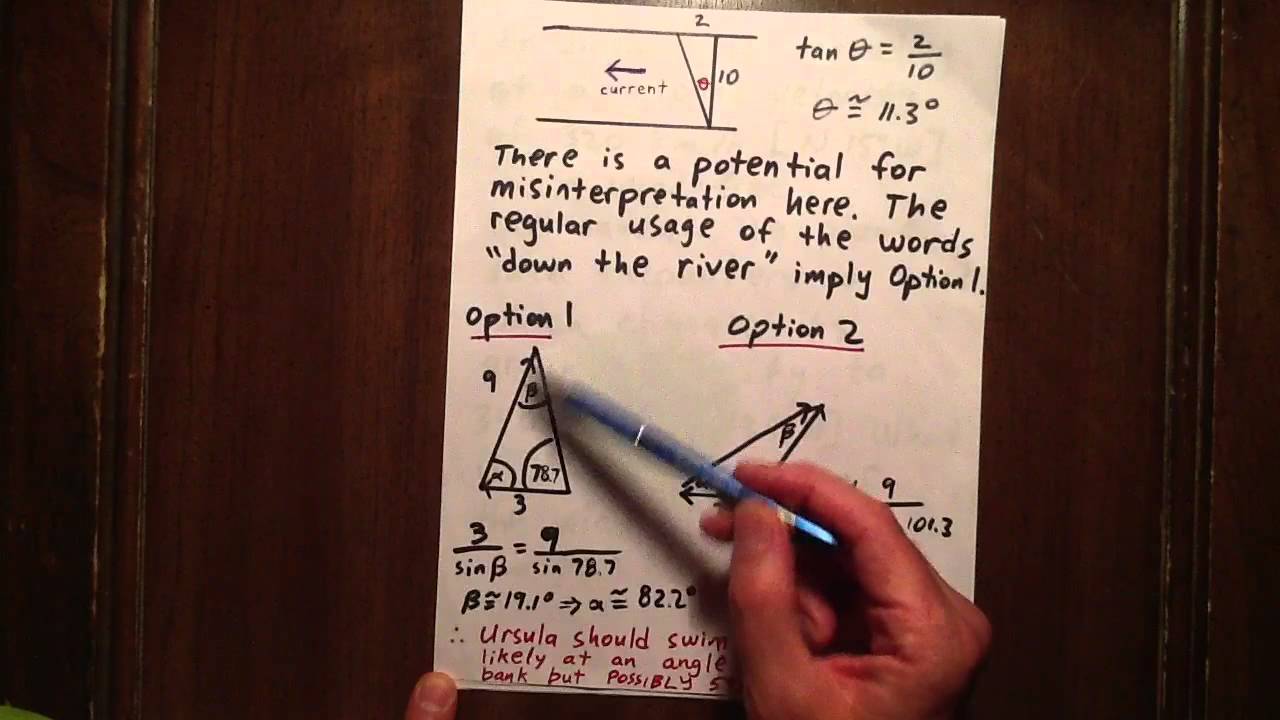 2
10
θ
current
tan θ = 2/10
θ ≅ 11.3°
There is a potential for
misinterpretation here. The
regular usage of the words
"down the river" imply Option 1.
Option 1
9
β
α
78.7
3
3/sin β = 9/sin 78.7
β ≅ 19.1° ⇒ α ≅ 82.2°
∴ Ursula should swim
likely at an angle
bank but POSSIBLY
Option 2
β
9
101.3